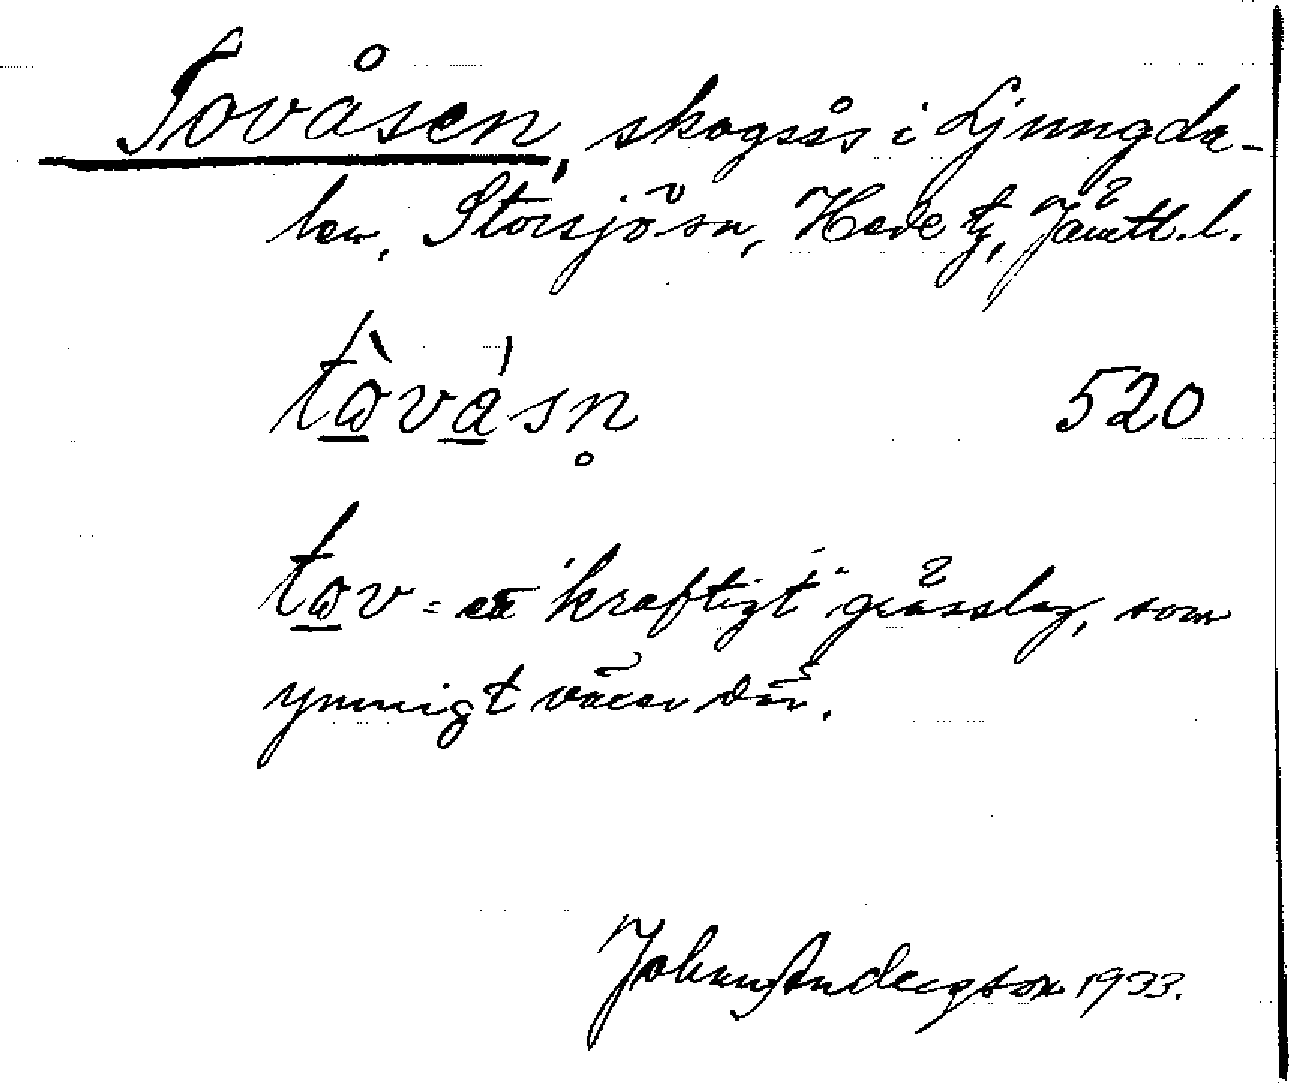 Tovåsen, skogsås i Ljungda-
len, Storsjö sn, Hede tg, Jämtl. l.
tὼvásn̥ 520
tωv = ett kraftigt grässlag, som
ymnigt växer där.
Johan Andersson 1933.